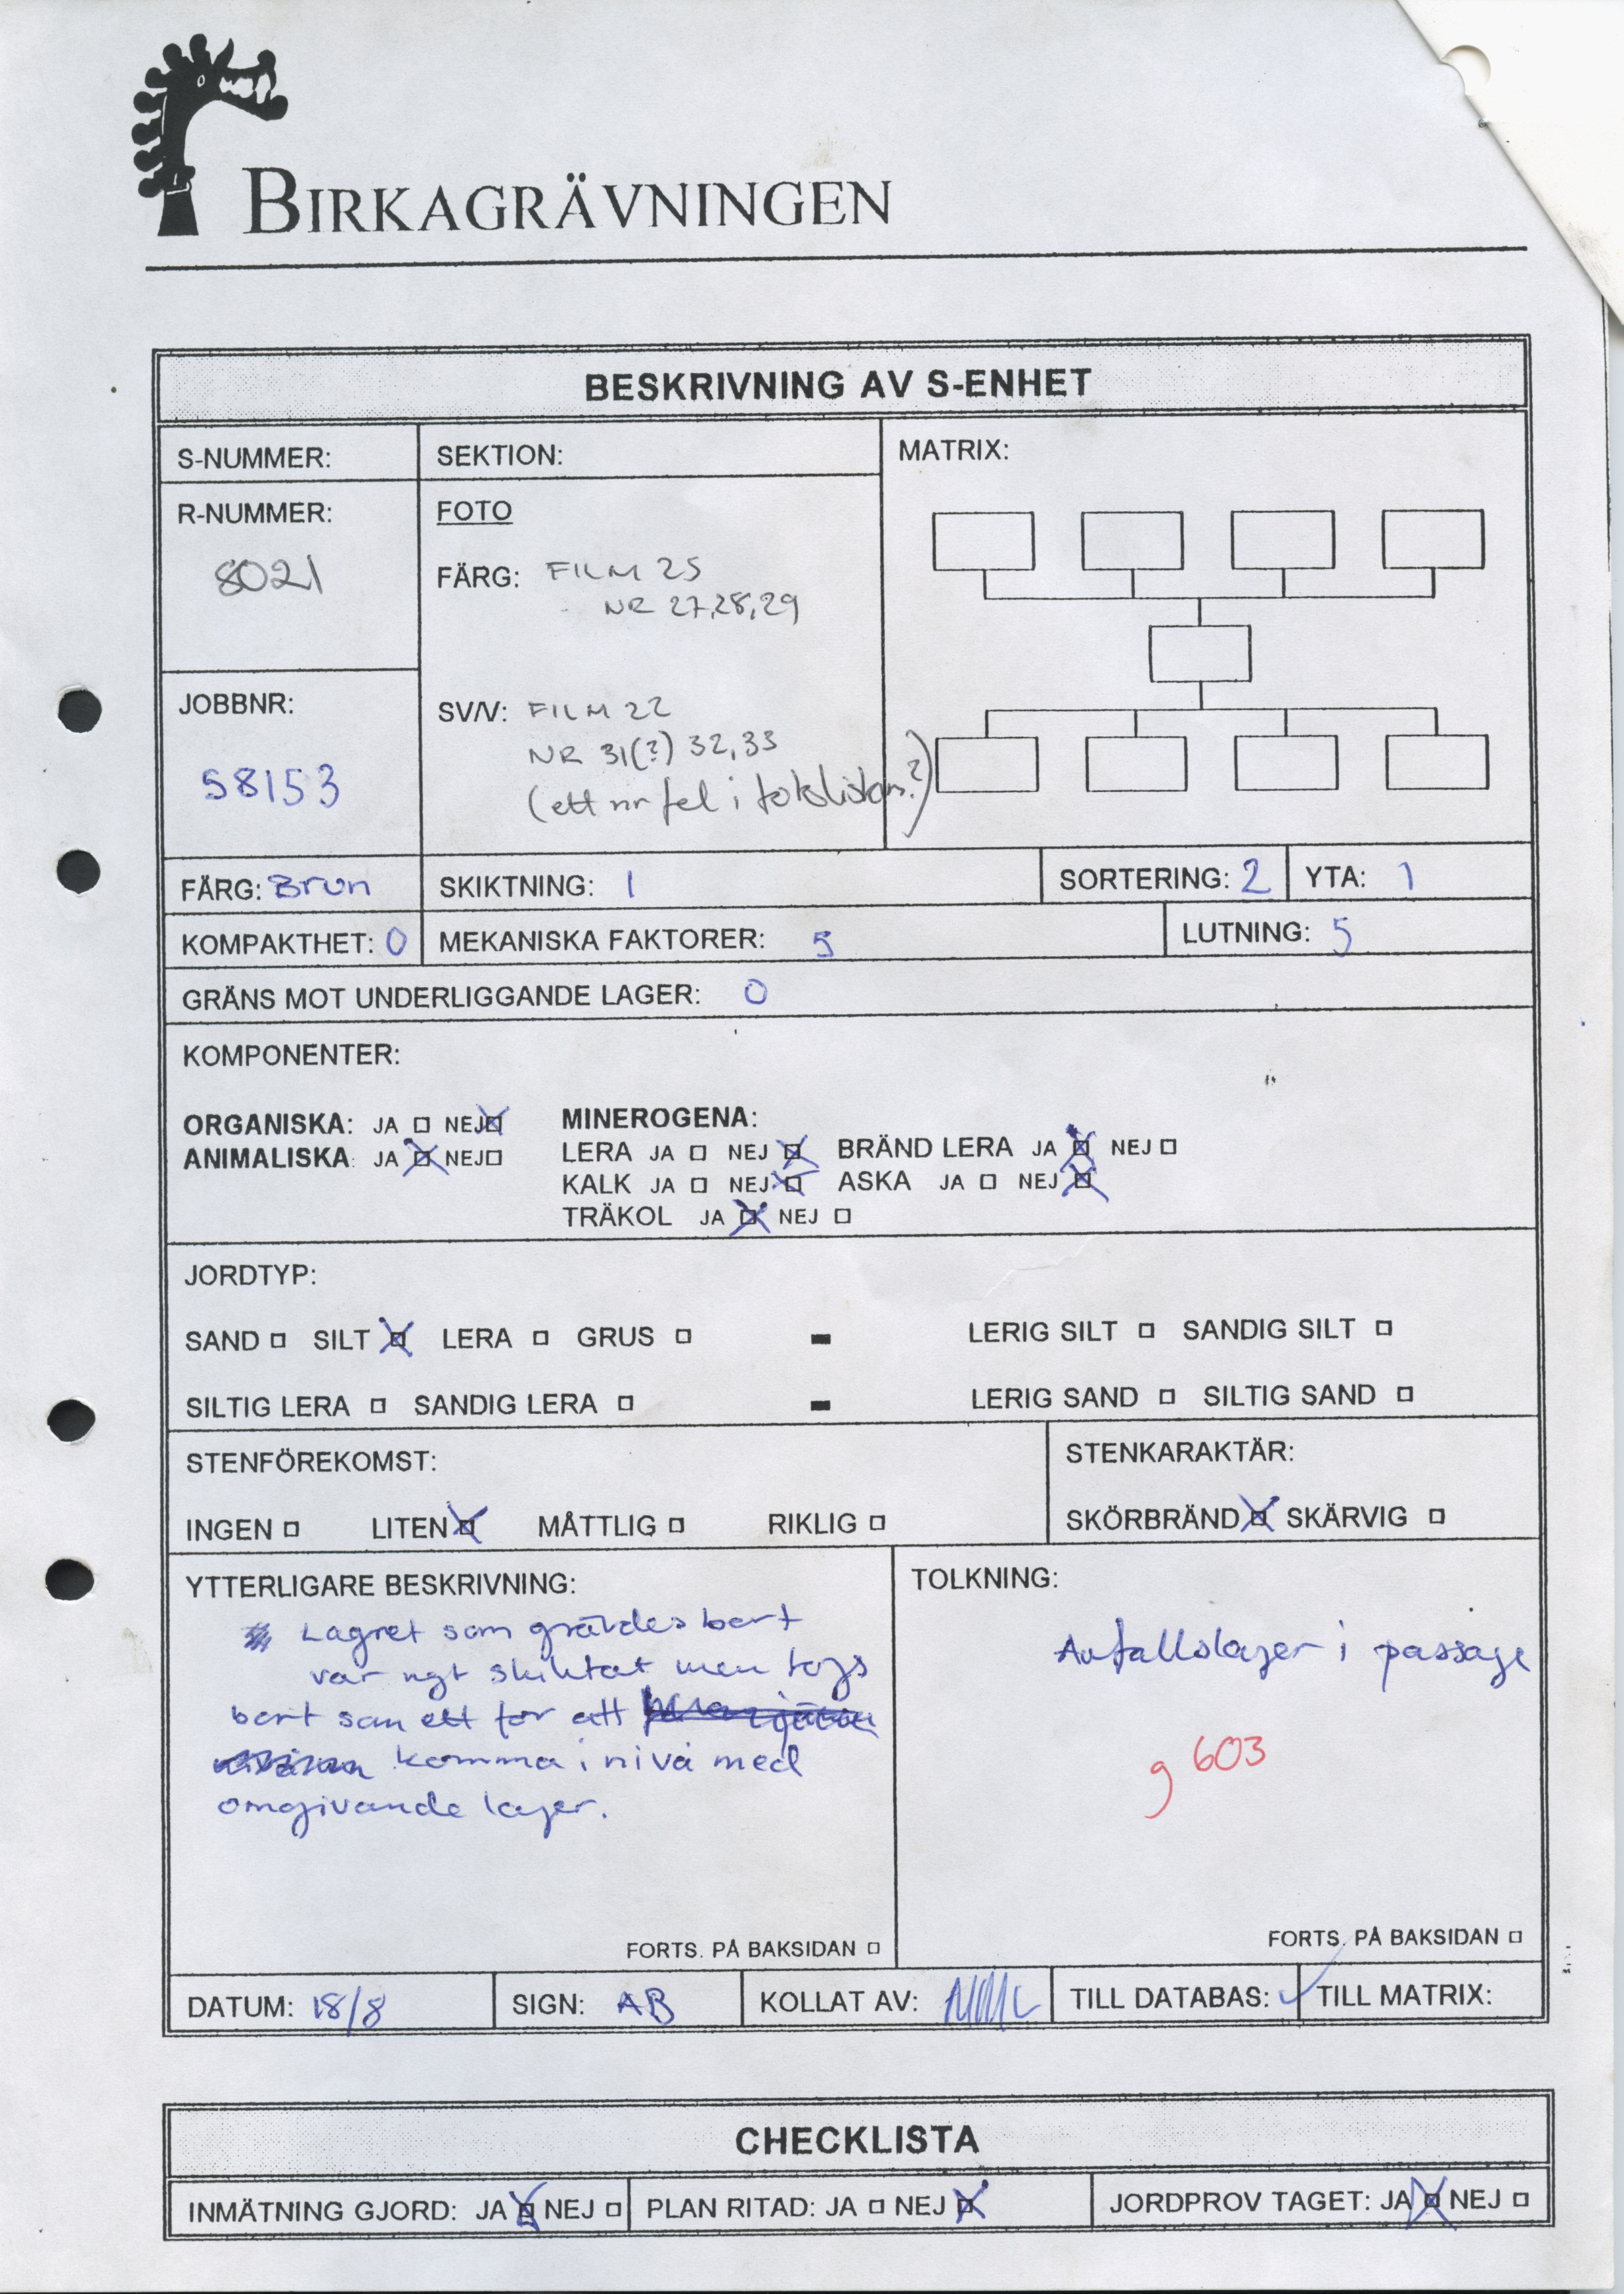 BIRKAGRÄVNINGEN
BESKRIVNING AV S-ENHET
S-NUMMER:
SEKTION:
MATRIX:
R-NUMMER:
8021
FOTO
FÄRG: FILM 25
NR 27,28,29
JOBBNR:
58153
SV/V: FILM 22
NR 31(?) 32,33
(ett nr fel i fotolistan?)
FÄRG: Brun
SKIKTNING: 1
SORTERING: 2
YTA: 1
KOMPAKTHET: 0
MEKANISKA FAKTORER: 5
LUTNING: 5
GRÄNS MOT UNDERLIGGANDE LAGER: 0
KOMPONENTER:
ORGANISKA: JA NEJ
ANIMALISKA: JA NEJ
MINEROGENA:
LERA JA NEJ BRÄND LERA JA NEJ
KALK JA NEJ ASKA JA NEJ
TRÄKOL JA NEJ
JORDTYP:
SAND SILT LERA GRUS - LERIG SILT SANDIG SILT
SILTIG LERA SANDIG LERA - LERIG SAND SILTIG SAND
STENFÖREKOMST:
INGEN LITEN MÅTTLIG RIKLIG
STENKARAKTÄR:
SKÖRBRÄND SKÄRVIG
YTTERLIGARE BESKRIVNING:
Lagret som grävdes bort
var ngt skiktat men togs
bort som ett för att
komma i nivå med
omgivande lager.
FORTS. PÅ BAKSIDAN
TOLKNING:
Avfallslager i passage
g 603
FORTS. PÅ BAKSIDAN
DATUM: 18/8
SIGN: AB
KOLLAT AV:
TILL DATABAS: ✓
TILL MATRIX:
CHECKLISTA
INMÄTNING GJORD: JA NEJ
PLAN RITAD: JA NEJ
JORDPROV TAGET: JA NEJ